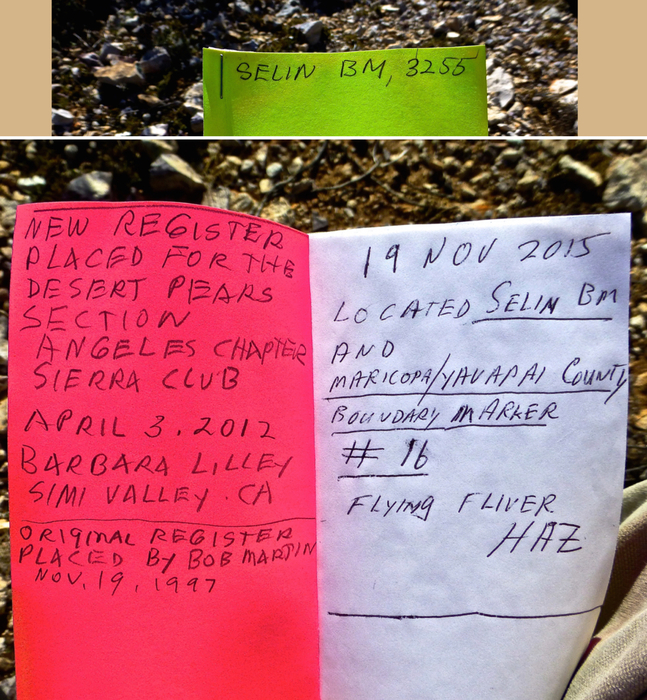 SELIN BM, 3255
NEW REGISTER
PLACED FOR THE
DESERT PEARS
SECTION
ANGELES CHAPTER
SIERRA CLUB
APRIL 3, 2012
BARBARA LILLEY
SIMI VALLEY. CA
ORIGINAL REGISTER
PLACED BY BOB MARTIN
NOV. 19, 1997
19 NOV 2015
LOCATED SELIN BM
AND
MARICOPA/YAVAPAI COUNTY
BOUNDARY MARKER
# 16
FLYING FLIVER
HAZ